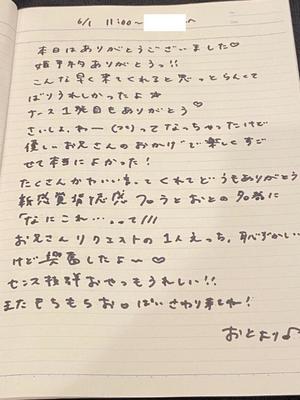 6/1 11:00〜 へ
本日はありがとうございました♡
姫予約ありがとうっ!!
こんな早く来てくれると思っとらんくて
ばりうれしかったよ☆
ナース1発目もありがとう
さいしょ、わー ってなっちゃったけど
優しいお兄さんのおかげで楽しくすご
せて本当によかった!
たくさんかわいいまってくれてどうもありがとう
新感覚 フロうとおとの名前に
なにこれ…って///
お兄さんリクエストの1人えっち、恥ずかしい
けど興奮したよ〜♡
センス抜群おやつもうれしい!!
またもちもちお ぱいさわり来てね!
おとより♪